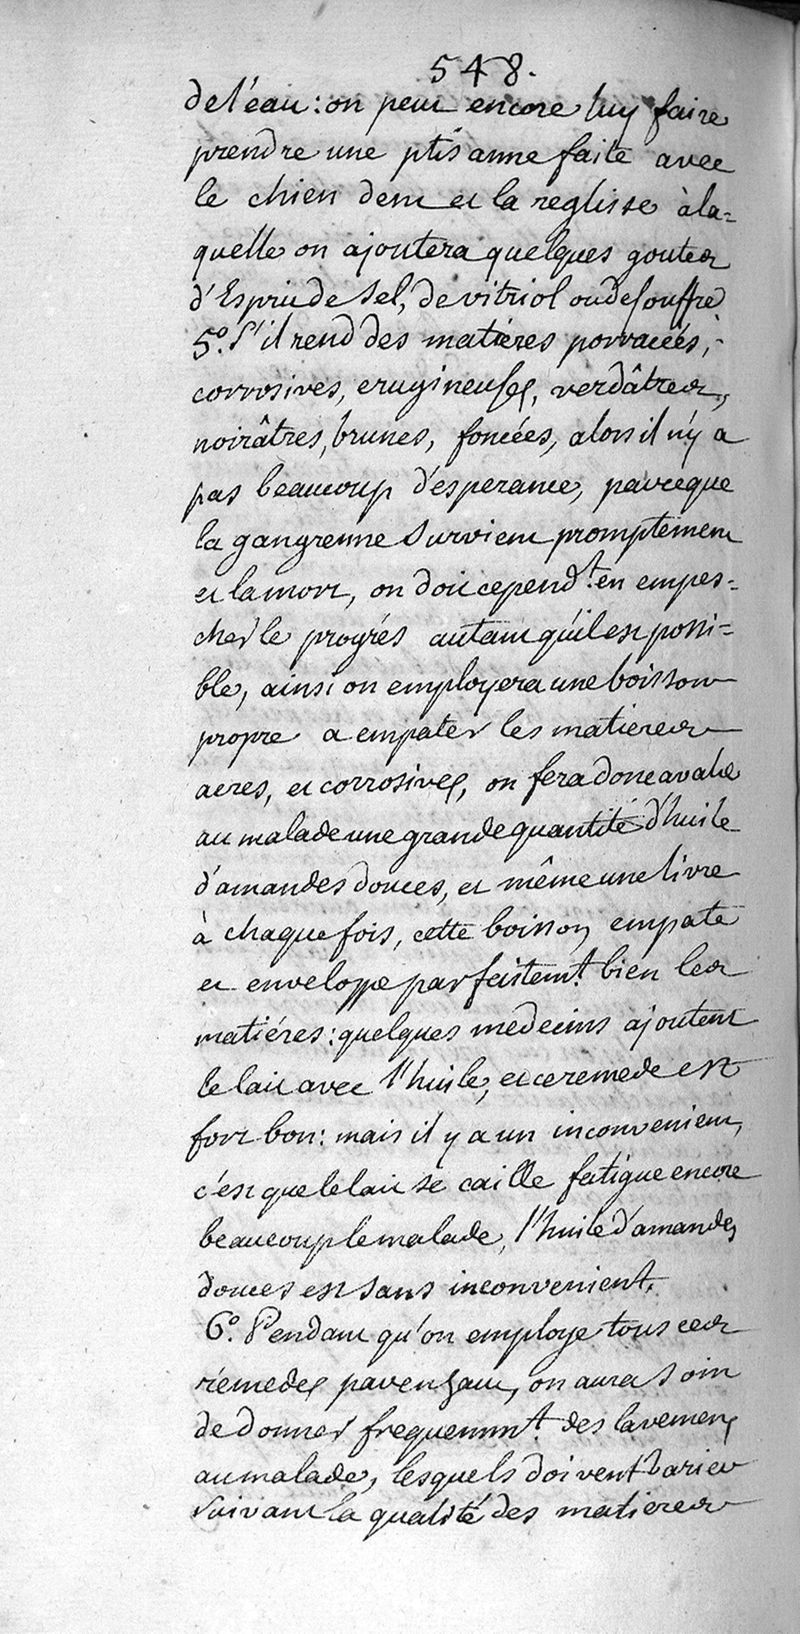 548.
de l'eau: on peut encore luy faire
prendre une ptisanne faite avec
le chien dent et la reglisse à la=
quelle on ajoutera quelques goutes
d'Esprit de sel, de vitriol ou de souffre
5.º S'il rend des matieres porracées,
corrosives, erugineuses, verdâtres,
noirâtres, brunes, foncées, alors il n'y a
pas beaucoup d'esperance, parceque
la gangrenne survient promptement
et la mort, on doit cepend.t en empes=
cher le progrés autant qu'il est possi=
ble, ainsi on employera une boisson
propre a empater les matieres
acres, et corrosives, on fera donc avaler
au malade une grande quantité d'huile
d'amandes douces, et même une livre
à chaque fois, cette boisson empate
et enveloppe parfaitem.t bien les
matiéres: quelques medecins ajoutent
le lait avec l'huile, et ce remede est
fort bon: mais il y a un inconvenient,
c'est que le lait se caille fatigue encore
beaucoup le malade, l'huile d'amandes
douces est sans inconvenient.
6.º Pendant qu'on employe tous ces
remedes par en haut, on aura soin
de donner frequemm.t des lavemens
au malade, lesquels doivent varier
suivant la qualité des matieres